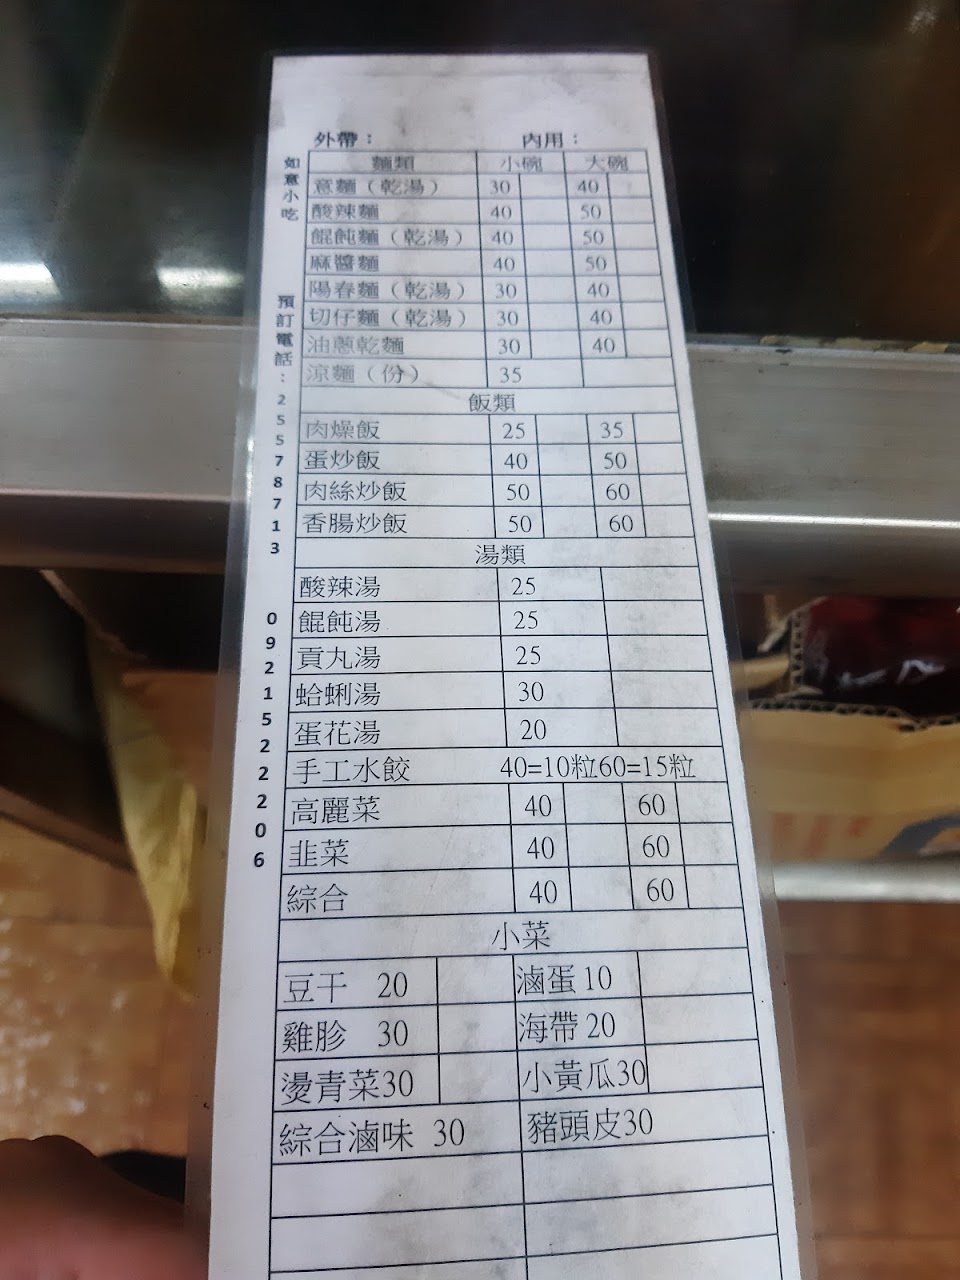 外帶： 內用：
如意小吃 預訂電話：25578713 0921522206
麵類 小碗 大碗
意麵（乾湯） 30 40
酸辣麵 40 50
餛飩麵（乾湯） 40 50
麻醬麵 40 50
陽春麵（乾湯） 30 40
切仔麵（乾湯） 30 40
油蔥乾麵 30 40
涼麵（份） 35
飯類
肉燥飯 25 35
蛋炒飯 40 50
肉絲炒飯 50 60
香腸炒飯 50 60
湯類
酸辣湯 25
餛飩湯 25
貢丸湯 25
蛤蜊湯 30
蛋花湯 20
手工水餃 40=10粒60=15粒
高麗菜 40 60
韭菜 40 60
綜合 40 60
小菜
豆干 20 滷蛋10
雞胗 30 海帶20
燙青菜30 小黃瓜30
綜合滷味 30 豬頭皮30